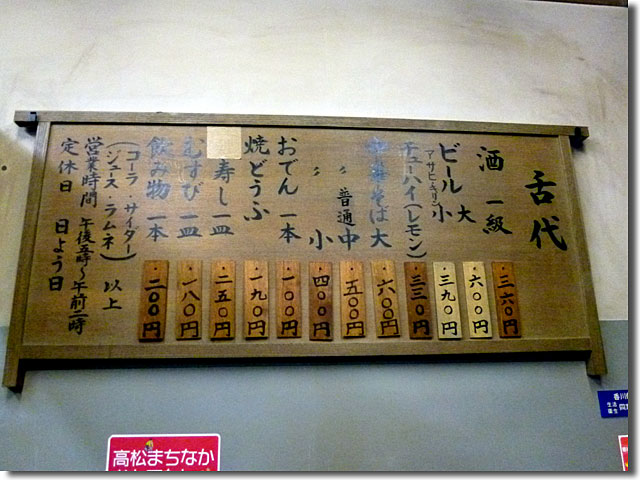 舌代
酒 一級 三六〇円
ビール 大 六〇〇円
アサヒ
小 三九〇円
チューハイ(レモン) 三三〇円
そば 大 六〇〇円
〃 普通中 五〇〇円
〃 小 四〇〇円
おでん 一本 一〇〇円
焼どうふ 一九〇円
寿し 一皿 二五〇円
むすび 一皿 一八〇円
飲み物 一本 二〇〇円
(コーラ・サイダー
ジュース・ラムネ) 以上
営業時間 午後五時〜午前二時
定休日 日よう日
高松まちなか
香川
生活
衛生